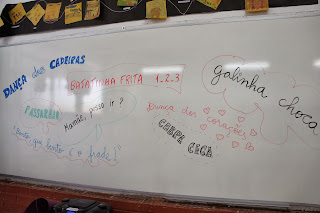 DANÇA das CADEIRAS
BATATINHA FRITA 1,2,3
galinha choca
PASSARAIO
Mamãe, posso ir?
Dança dos corações
CABRA CEGA
"Bento que bento é o frade!"